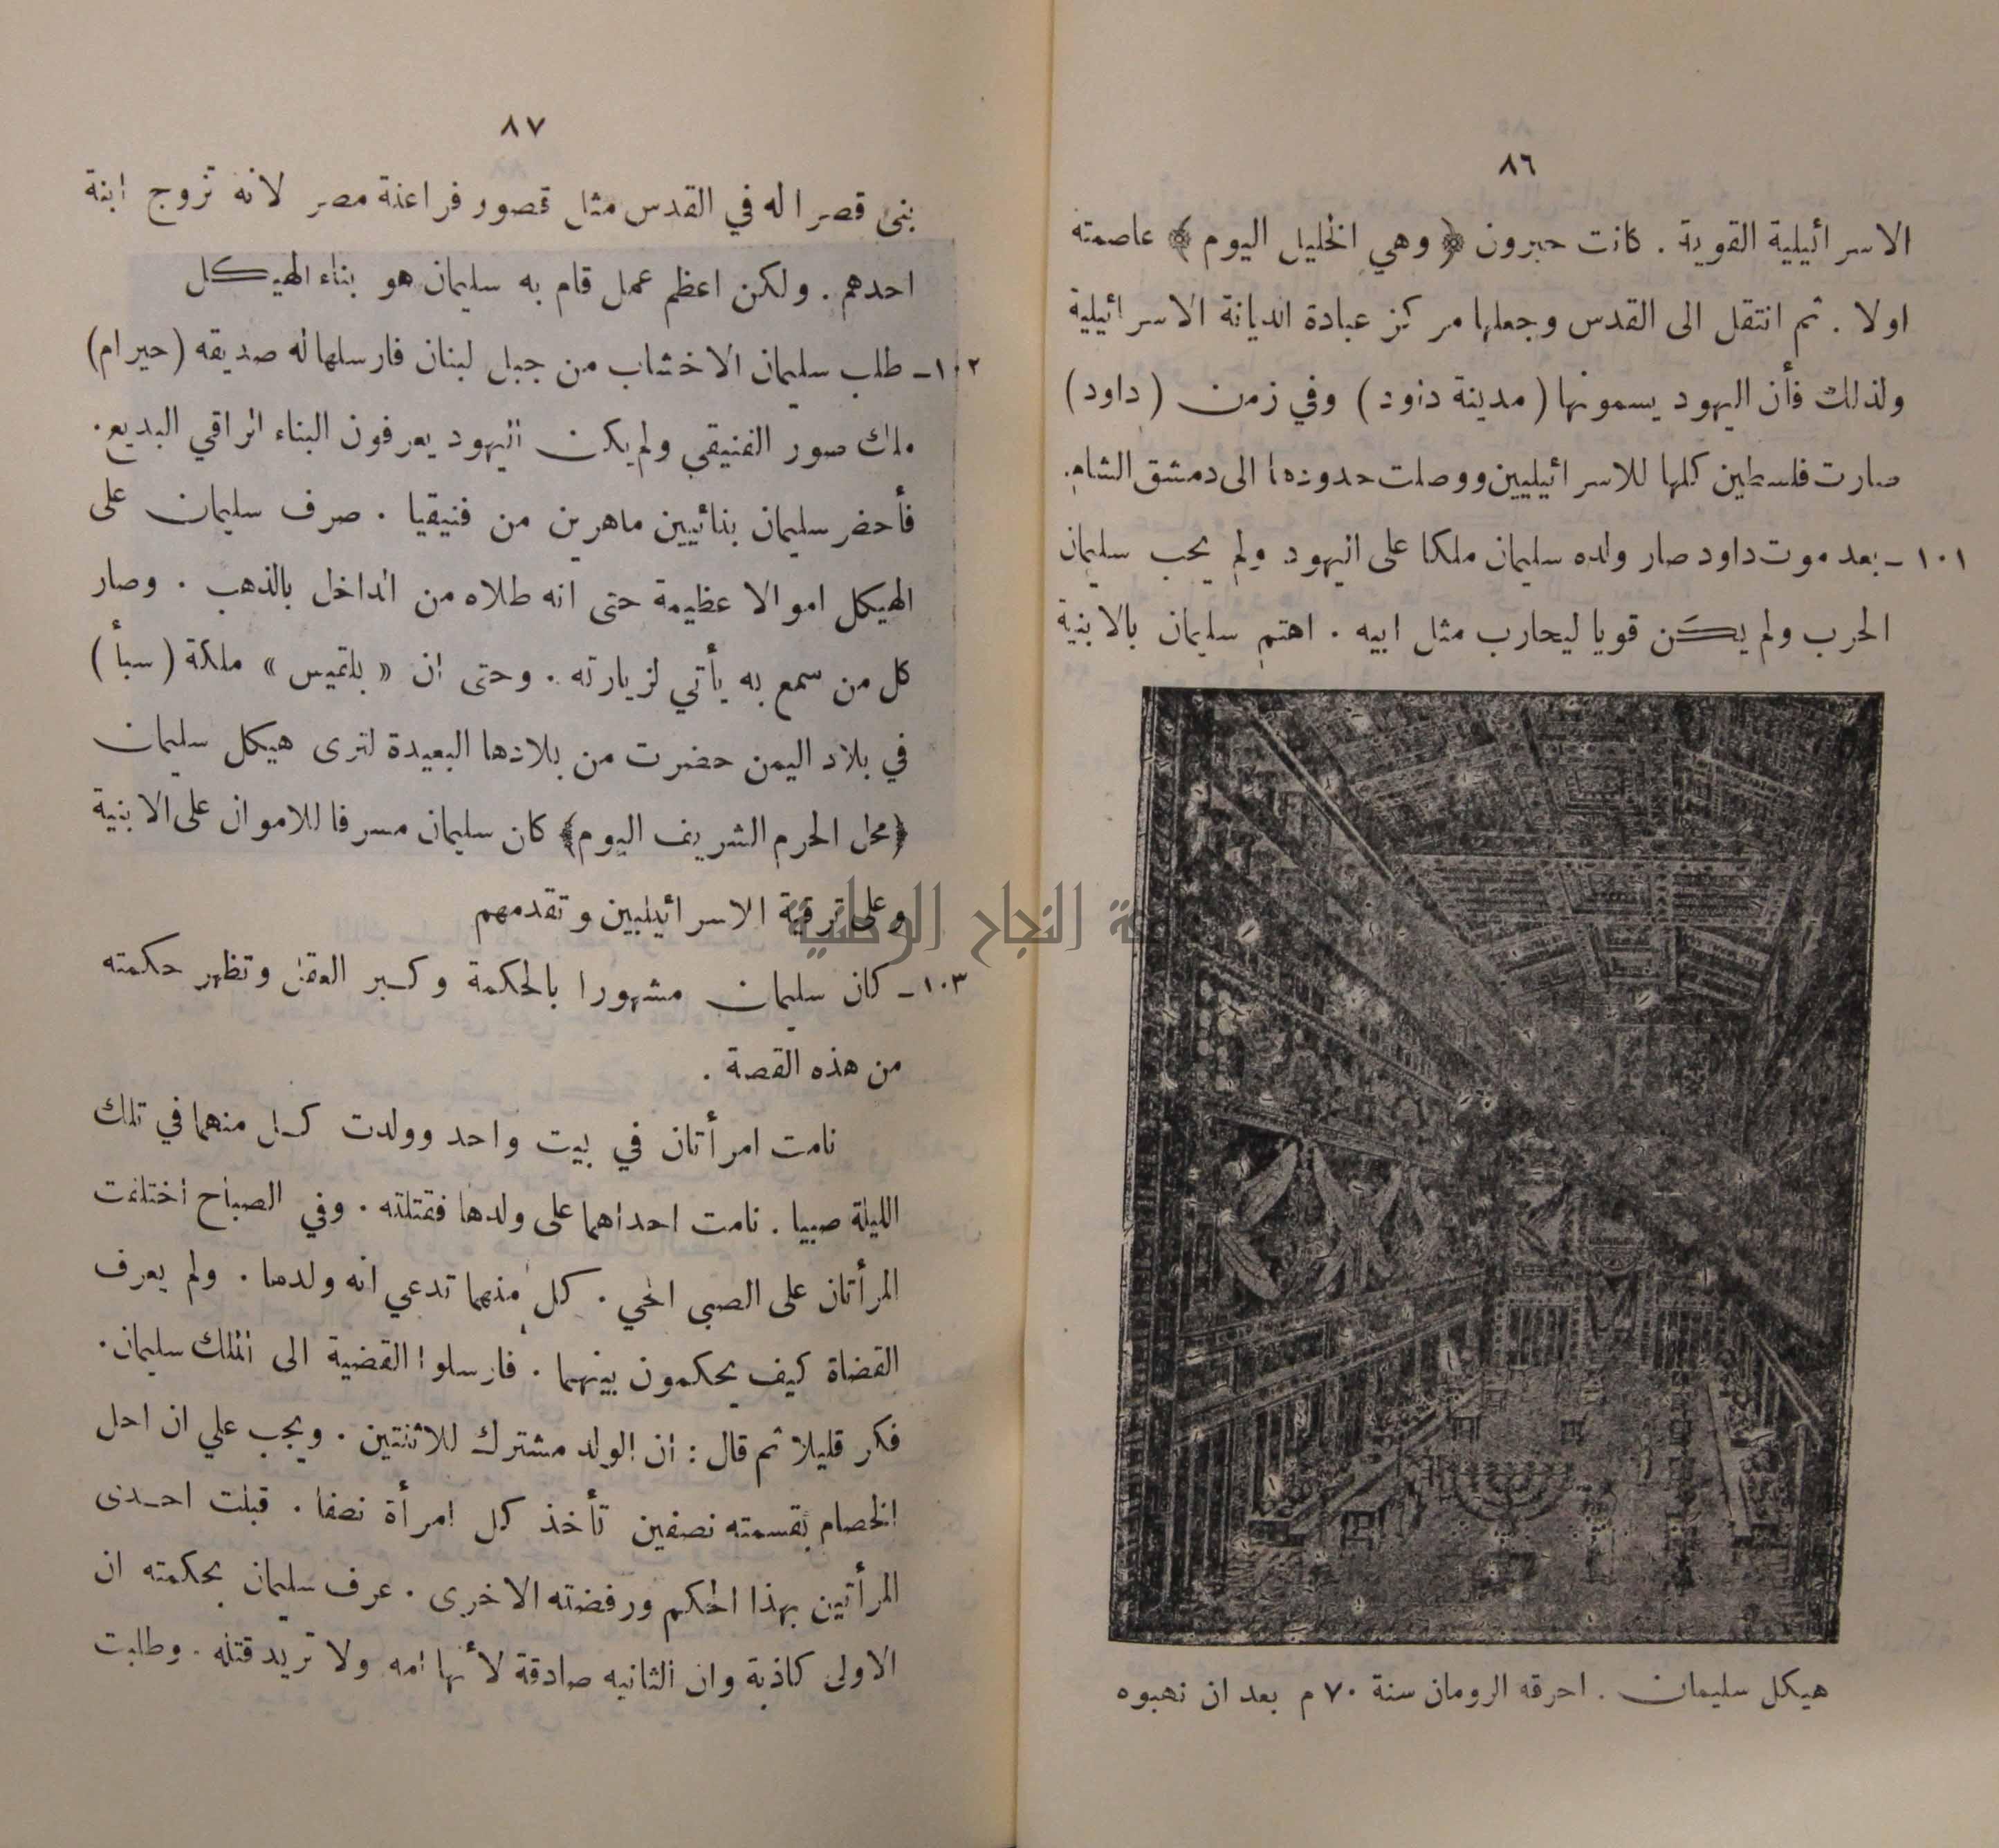 ٨٦
الاسرائيلية القوية . كانت حبرون ﴿ وهي الخليل اليوم ﴾ عاصمته
اولا . ثم انتقل الى القدس وجعلها مركز عبادة الديانة الاسرائيلية
ولذلك فأن اليهود يسمونها ( مدينة داود ) وفي زمن ( داود )
صارت فلسطين كلها للاسرائيليين ووصلت حدودها الى دمشق الشام.
١٠١ - بعد موت داود صار ولده سليمان ملكا على اليهود ولم يحب سليمان
الحرب ولم يكن قويا ليحارب مثل ابيه . اهتم سليمان بالابنية
هيكل سليمان . احرقه الرومان سنة ٧٠ م بعد ان نهبوه
٨٧
بنى قصرا له في القدس مثل قصور فراعنة مصر لانه تزوج ابنة
احدهم . ولكن اعظم عمل قام به سليمان هو بناء الهيكل
١٠٢ - طلب سليمان الاخشاب من جبل لبنان فارسلها له صديقه ( حيرام )
ملك صور الفنيقي ولم يكن اليهود يعرفون البناء الراقي البديع .
فأحضر سليمان بنائيين ماهرين من فنيقيا . صرف سليمان على
الهيكل اموالا عظيمة حتى انه طلاه من الداخل بالذهب . وصار
كل من سمع به يأتي لزيارته . وحتى ان « بلقيس » ملكة ( سبأ )
في بلاد اليمن حضرت من بلادها البعيدة لترى هيكل سليمان
﴿ محل الحرم الشريف اليوم ﴾ كان سليمان مسرفا للاموال على الابنية
وعلى ترقية الاسرائيليين وتقدمهم
النجاح الوطنية
١٠٣ - كان سليمان مشهورا بالحكمة وكبر العقل وتظهر حكمته
من هذه القصة .
نامت امرأتان في بيت واحد وولدت كل منهما في تلك
الليلة صبيا . نامت احداهما على ولدها فقتلته . وفي الصباح اختلفت
المرأتان على الصبى الحي . كل منهما تدعي انه ولدها . ولم يعرف
القضاة كيف يحكمون بينهما . فارسلوا القضية الى الملك سليمان .
فكر قليلا ثم قال : ان الولد مشترك للاثنتين . ويجب علي ان احل
الخصام بقسمته نصفين تأخذ كل امرأة نصفا . قبلت احدى
المرأتين بهذا الحكم ورفضته الاخرى . عرف سليمان بحكمته ان
الاولى كاذبة وان الثانيه صادقة لأنها امه ولا تريد قتله . وطلبت